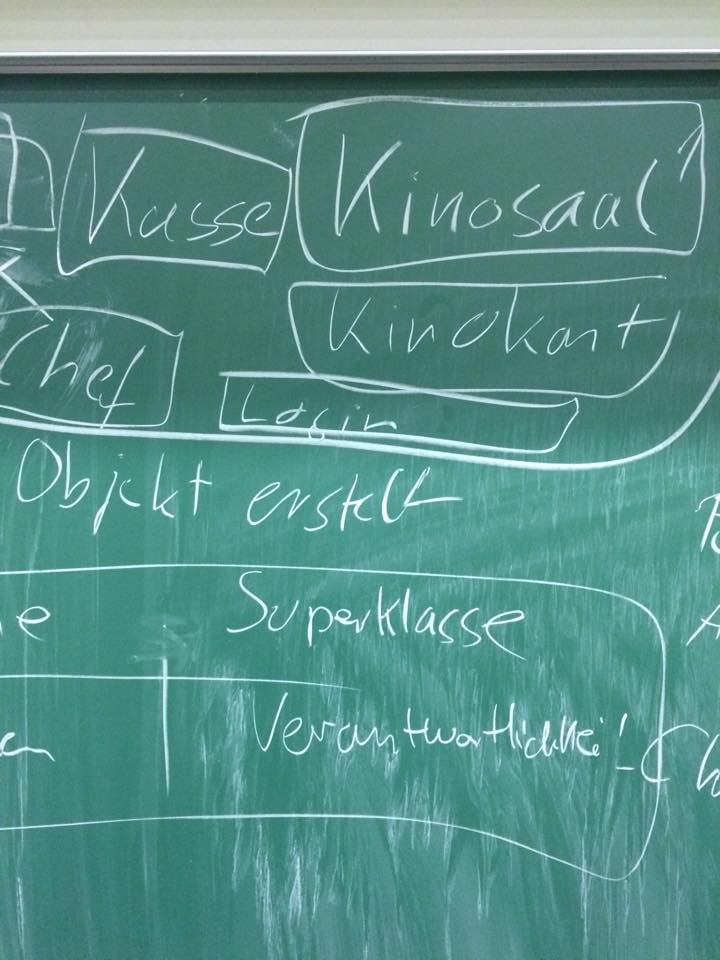 Kasse Kinosaal
Kinokart
Chef
Login
Objekt erstellt
Superklasse
Verantwortlichkei